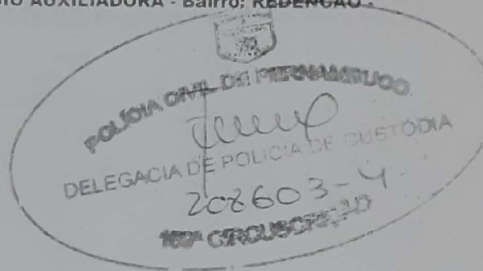 AUXILIADORA - Bairro: REDENCAO -
POLICIA CIVIL DE PERNAMBUCO
DELEGACIA DE POLICIA DE CUSTODIA
208603-4
CIRCUSCRIÇÃO